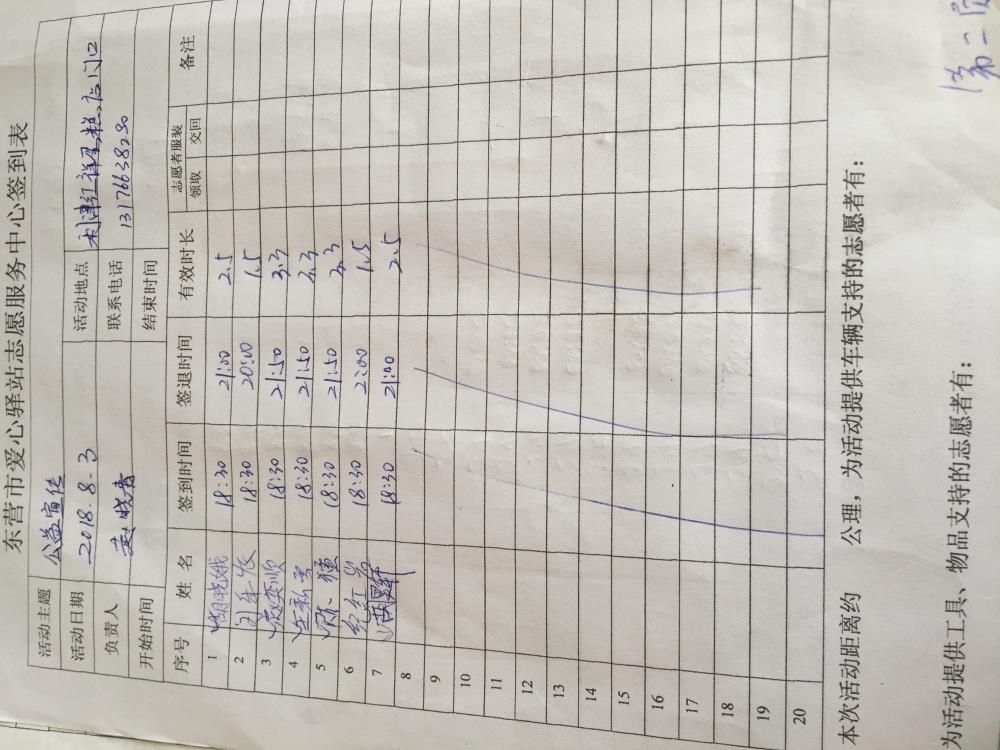 东营市爱心驿站志愿服务中心签到表
活动主题 公益宣传
活动日期 2018.8.3 活动地点 利津红祥蛋糕店门口
负责人 联系电话 13176638250
开始时间 结束时间
序号 姓名 签到时间 签退时间 有效时长 志愿者服装 领取 交回 备注
1 胡晓娥 18:30 21:00 2.5
2 18:30 20:00 1.5
3 18:30 21:50 3.3
4 18:30 21:50 3.3
5 18:30 21:50 3.3
6 18:30 1.5
7 18:30 21:00 2.5
8
9
10
11
12
13
14
15
16
17
18
19
20
本次活动距离约 公理，为活动提供车辆支持的志愿者有：
为活动提供工具、物品支持的志愿者有：
第二